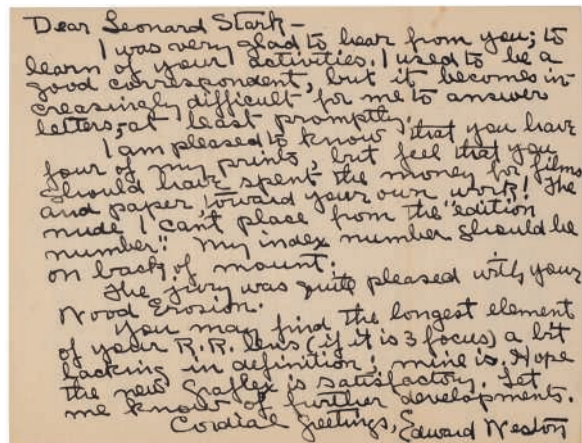 Dear Leonard Stark –
I was very glad to hear from you; to
learn of your activities. I used to be a
good correspondent, but it becomes in-
creasingly difficult for me to answer
letters, at least promptly.
I am pleased to know that you have
four of my prints, but feel that you
should have spent the money for films
and paper, toward your own work! The
nude I can't place from the "edition
number." My index number should be
on back of mount.
The jury was quite pleased with your
Wood Erosion.
You may find the longest element
of your R.R. lens (if it is 3 focus) a bit
lacking in definition; mine is. Hope
the new Graflex is satisfactory. Let
me know of further developments.
Cordial greetings, Edward Weston